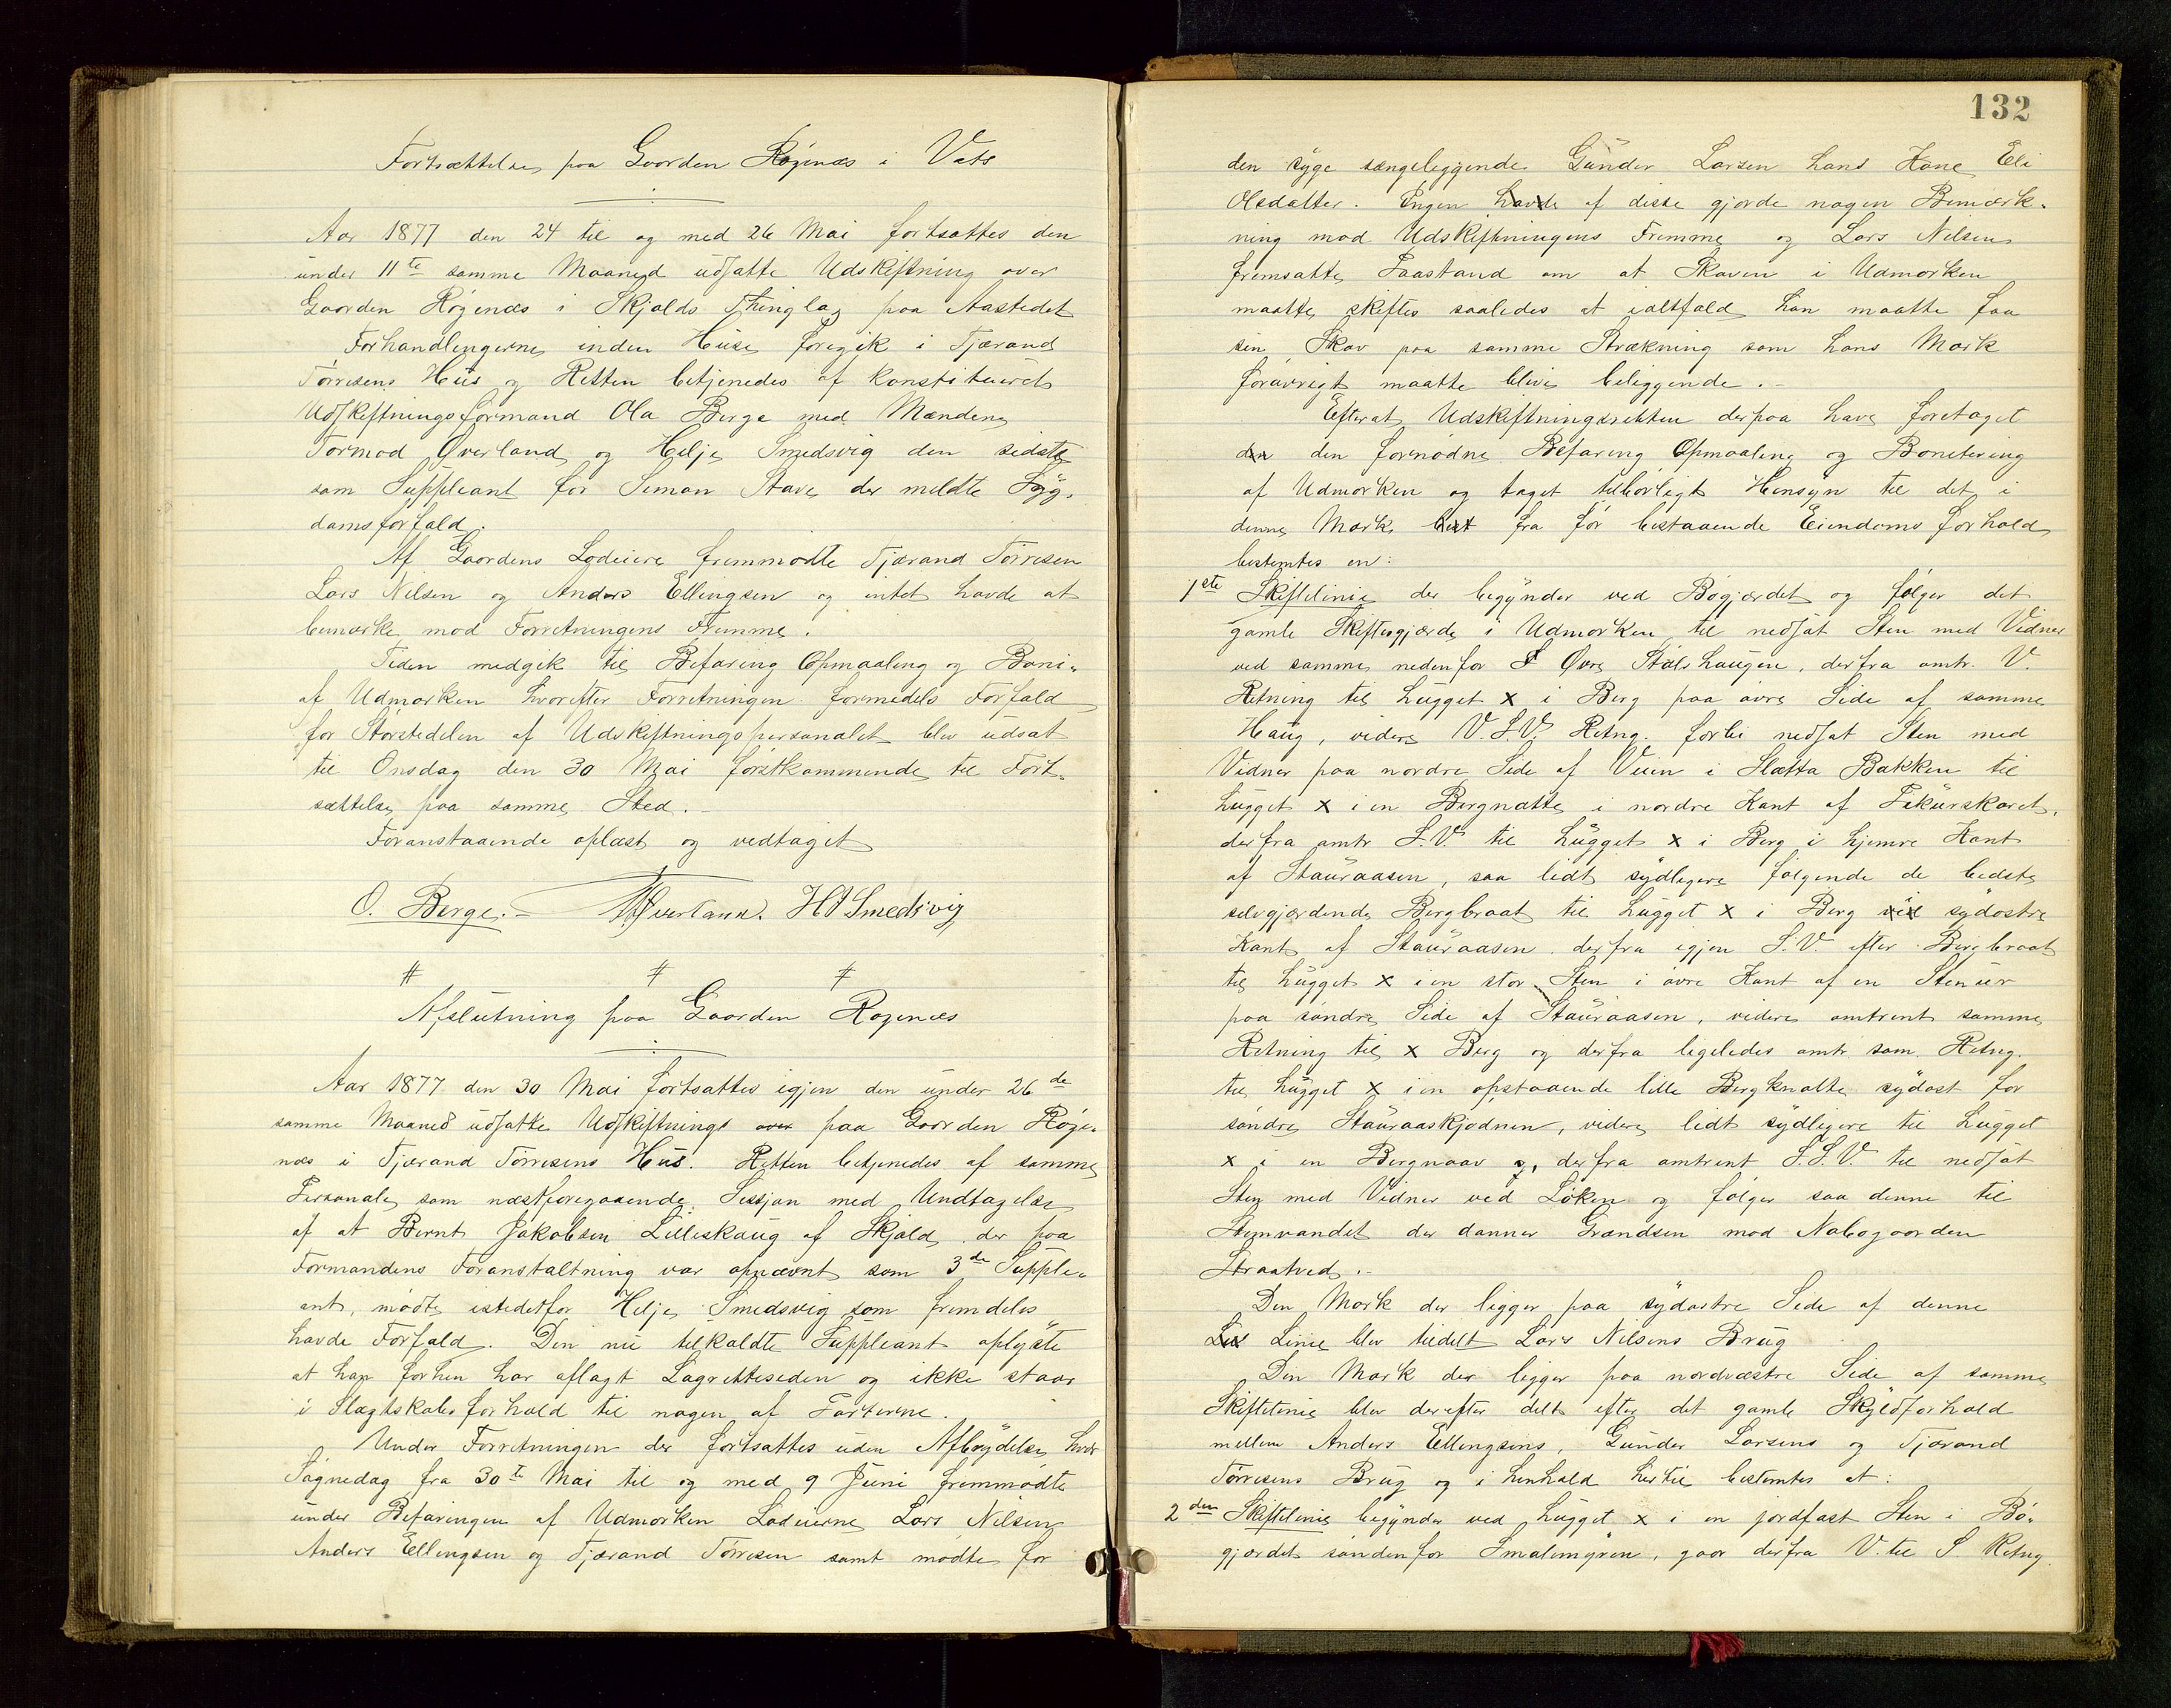 Fortsættelse paa Gaarden Røgenæs i Vats
Aar 1877 den 24 til og med 26 Mai fortsattes den
under 11te samme Maaned udsatte Udskiftning over
Gaarden Røgenæs i Skjolds Thinglag paa Aastedet
Forhandlingerne inden Huse foregik i Tjærand
Tørresens Hus og Retten betjenedes af konstitueret
Udskiftningsformand Ola Berge med Mændene
Tormod Øverland og Helje Smedsvig den sidste
som Suppleant for Simon Stave der meldte Syg-
domsforfald.
Af Gaardens Lodeiere fremmødte Tjærand Tørresen
Lars Nilsen og Anders Ellingsen og intet havde at
bemærke mod Forretningens Fremme.
Tiden medgik til Befaring Opmaaling og Boni-
af Udmarken hvorefter Forretningen formedels Forfald
for Størstedelen af Udskiftningspersonalet blev udsat
til Onsdag den 30 Mai førstkommende til Fort-
sættelse paa samme Sted.-
Foranstaaende oplæst og vedtaget
O. Berge.- TOverland. HT Smedsvig
# # #
Afslutning paa Gaarden Røgenæs
Aar 1877 den 30 Mai fortsattes igjen den under 26de
samme Maaned udsatte Udskiftnings over paa Gaarden Røge-
næs i Tjærand Tørresens Hus. Retten betjenedes af samme
Personale som næstforegaaende Sessjon med Undtagelse
af at Bernt Jakobsen Lilleskaug af Skjold der paa
Formandens Foranstaltning var opnævnt som 3de Supple-
ant, mødte istedetfor Helje Smedsvig som fremdeles
havde Forfald. Den nu tilkaldte Suppleant oplyste
at han forhen har aflagt Lagretteseden og ikke staar
i Slægtskabsforhold til nogen af Parterne.
Under Forretningen der fortsattes uden Afbrydelse hver
Søgnedag fra 30te Mai til og med 9 Juni fremmødte
under Befaringen af Udmarken Lodeierne Lars Nilsen
Anders Ellingsen og Tjærand Tørresen samt mødte for
132
den syge sængeliggende Gunder Larsen hans Kone Eli
Olsdatter. Ingen havde af disse gjorde nogen Bemærk-
ning mod Udskiftningens Fremme og Lars Nilsen
fremsatte Paastand om at Skoven i Udmarken
maatte skiftes saaledes at ialtfald han maatte faa
sin Skov paa samme Strækning som hans Mark
forøvrigt maatte blive beliggende.-
Efterat Udskiftningsretten derpaa have foretaget
den den fornødne Befaring Opmaaling og Bonitering
af Udmarken og taget tilbørligt Hensyn til det i
denne Mark best fra før bestaaende Eiendomsforhold
bestemtes en:
1ste Skiftelinie der begynder ved Bøgjærdet og følger det
gamle Skiftesgjærde i Udmarken til nedsat Sten med Vidner
ved samme nedenfor S Øvre Stølshaugen, derfra omtr. V.
Retning til hugget x i Berg paa øvre Side af samme
Haug, videre V.S.V. Retng. forbi nedsat Sten med
Vidner paa nordre Side af Veien i Slætta Bakken til
hugget x i en Bergnatte i nordre Kant af
derfra omtr S.V. til hugget x i Berg i hjemre Kant
af Stauraasen, saa lidt sydligere følgende de bedste
selvgjærdende Bergbraat til hugget x i Berg ved sydøstre
Kant af Stauraasen derfra igjen S.V. efter Bergbraat
til hugget x i en stor Sten i øvre Kant af en Stenur
paa søndre Side af Stauraasen, videre omtrent samme
Retning til x Berg og derfra ligeledes omtr. sam. Retng.
til hugget x i en opstaaende lille Bergknatte sydøst for
søndre Stauraaskjødnen, videre lidt sydligere til hugget
x i en Bergnaav og, derfra omtrent S.S.V. til nedsat
Sten med Vidner ved Løken og følger saa denne til
Stemvandet der danner Grændsen mod Nabogaarden
Straatveit.-
Den Mark der ligger paa sydøstre Side af denne
Lin Linie blev tildelt Lars Nilsens Brug
Den Mark der ligger paa nordvæstre Side af samme
Skiftelinie blev derefter delt efter det gamle Skyldforhold
mellem Anders Ellingsens, Gunder Larsens og Tjærand
Tørresens Brug og i henhold hertil bestemtes at:
2den Skiftelinie begynder ved hugget x i en jordfast Sten i Bø-
gjærdet søndenfor Smalemyren, gaar derfra V. til S. Retng.